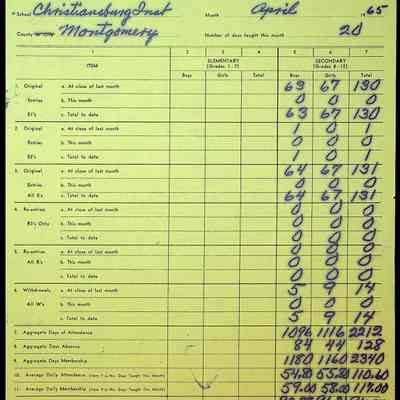 School Christiansburg Inst Month April 1965
County Montgomery Number of days taught this month 20
1 2 3 4 5 6 7
ELEMENTARY SECONDARY
(Grades 1-7) (Grades 8-12)
ITEM Boys Girls Total Boys Girls Total
1. Original a. At close of last month 63 67 130
Entries b. This month 0 0 0
E1's c. Total to date 63 67 130
2. Original a. At close of last month 1 0 1
Entries b. This month 0 0 0
E2's c. Total to date 1 0 1
3. Original a. At close of last month 64 67 131
Entries b. This month 0 0 0
All E's c. Total to date 64 67 131
4. Re-entries a. At close of last month 0 0 0
b. This month 0 0 0
c. Total to date 0 0 0
5. Re-entries a. At close of last month 0 0 0
All R's b. This month 0 0 0
c. Total to date 0 0 0
6. Withdrawals a. At close of last month 5 9 14
All W's b. This month 0 0 0
c. Total to date 5 9 14
7. Aggregate Days of Attendance 1096 1116 2212
8. Aggregate Days Absence 84 44 128
9. Aggregate Days Membership 1180 1160 2340
10. Average Daily Attendance (Item 7 ÷ No. Days Taught This Month) 54.80 55.80 110.60
11. Average Daily Membership (Item 9 ÷ No. Days Taught This Month) 59.00 58.00 117.00